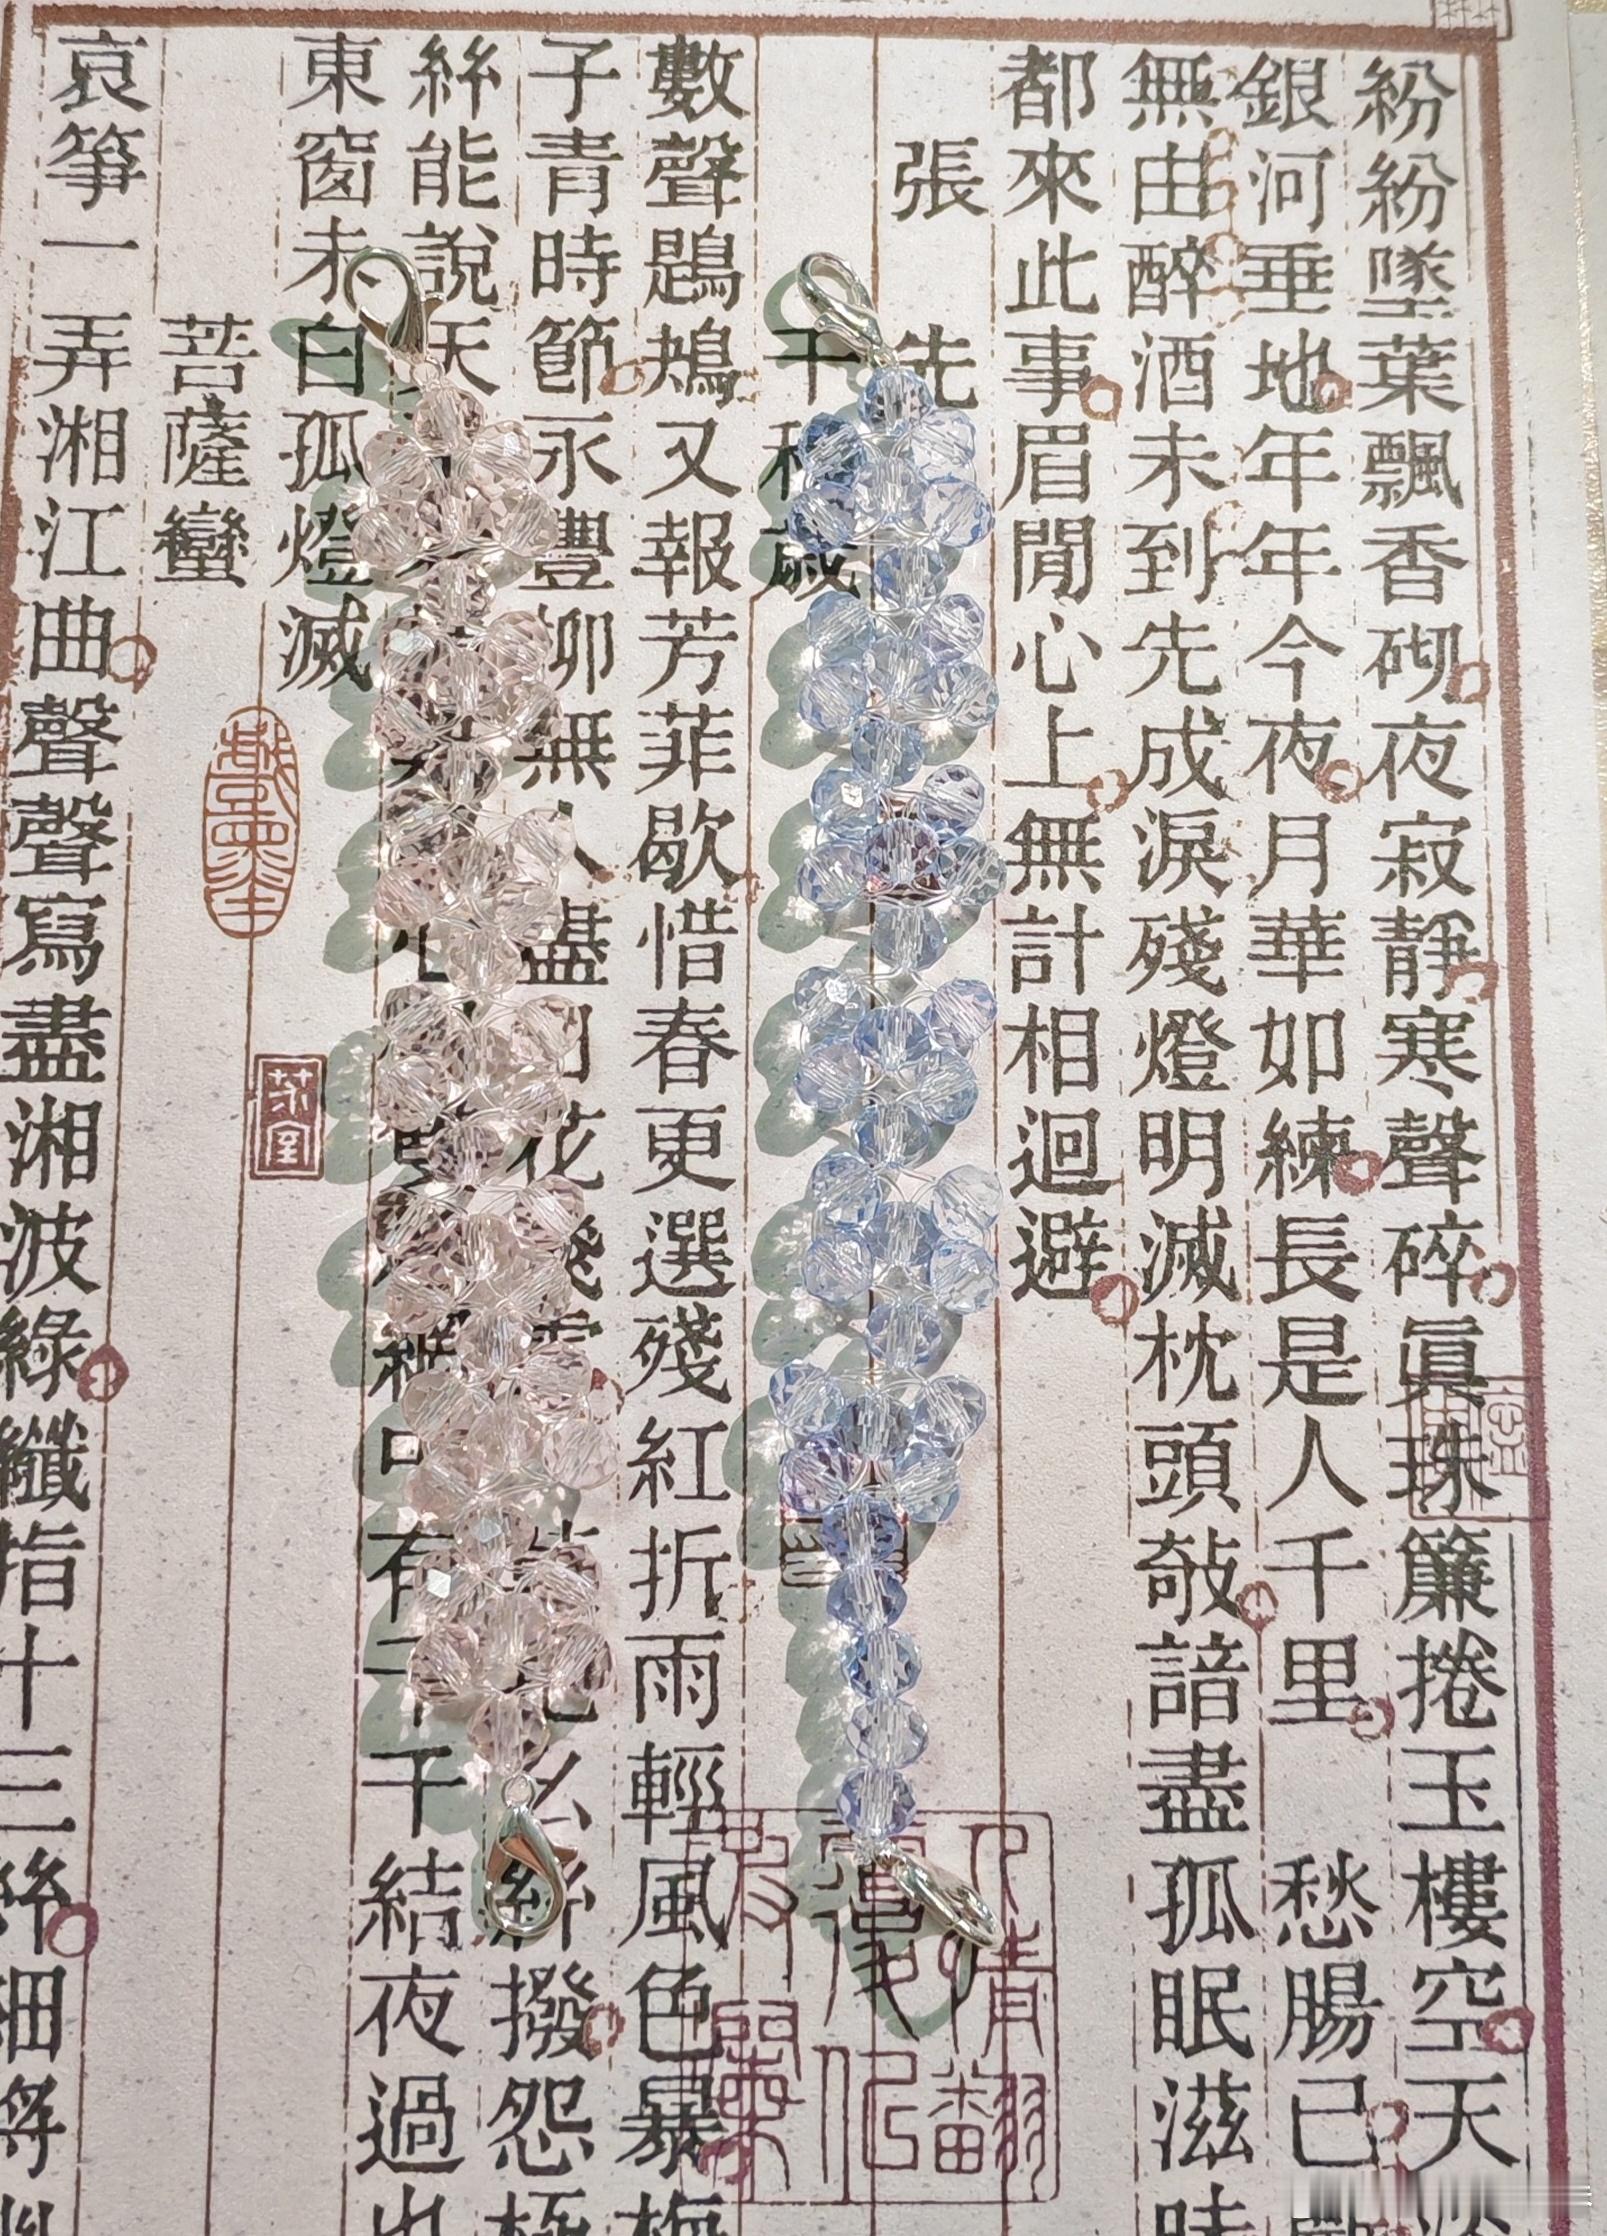 紛紛墜葉飄香砌夜寂靜寒聲碎眞珠簾捲玉樓空天
銀河垂地年年今夜月華如練長是人千里 愁腸已斷
無由醉酒未到先成淚殘燈明滅枕頭敧諳盡孤眠滋味
都來此事眉閒心上無計相迴避
張 先
千秋歲
數聲鶗鴂又報芳菲歇惜春更選殘紅折雨輕風色暴梅
子青時節永豐柳無人盡日花飛雪 莫 幺絃撥怨極
絲能說天 網中有千千結夜過也
東窗未白孤燈滅
菩薩蠻
哀箏一弄湘江曲聲聲寫盡湘波綠纖指十三絃細將